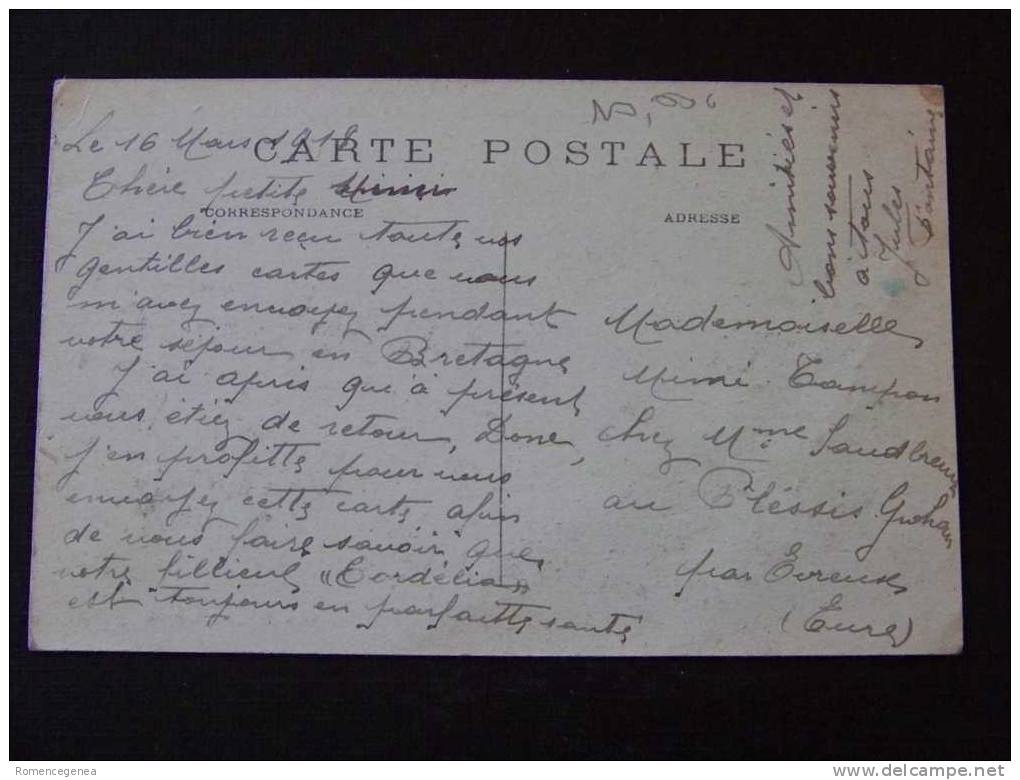 Le 16 Mars 191
CARTE POSTALE
Chère petite Mimi
CORRESPONDANCE
J'ai bien reçu toute vos
gentilles cartes que vous
m'avez envoyez pendant
votre séjour en Bretagne
J'ai apris qu'à présent
vous étiez de retour, Donc,
j'en profitte pour vous
envoyez cette carte afin
de vous faire savoir que
votre fillieul "Cordélia"
est toujours en parfaitte santé
ADRESSE
Mademoiselle
Mimi Tampon
chez Mme
au Pléssis Grohan
par Evreux
(Eure)
Amitiés et
bons souvenirs
à tous
Jules
Fontaine
Romencegenea
www.delcampe.net